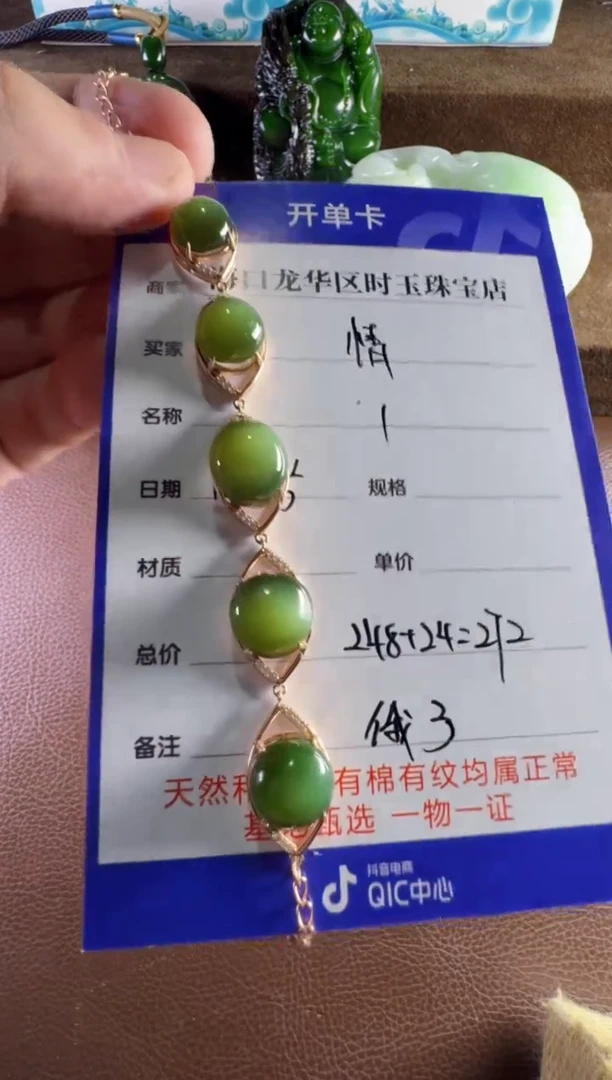 开单卡
商家 海口龙华区时玉珠宝店
买家 情
名称 1
日期 规格
材质 单价
总价 248+24=272
备注 俄3
天然 有棉有纹均属正常
甄选 一物一证
抖音电商
QIC中心